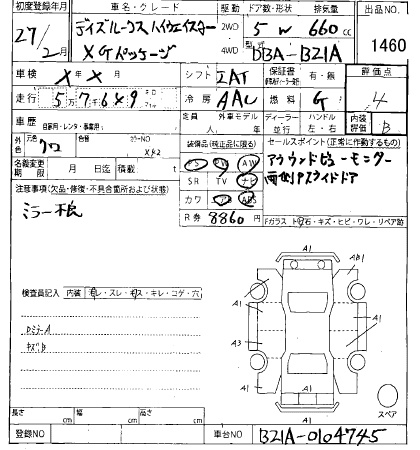 初度登録年月 車名・グレード 駆動 ドア数・形状 排気量 出品NO
27/2月 デイズルークス ハイウェイスター 2WD 5W 660cc 1460
XGパッケージ 4WD 型式 DBA-B21A
車検 X年X月 シフト IAT 保証書 有・無 評価点
走行 5万7千6百49 冷房 AAC 燃料 G 4
車歴 自家用・レンタ・事業用 定員 人 外車モデル年 年 ディーラー 並行 ハンドル 左・右 内装評価 B
外色 元色 クロ カラーNO 装備品(純正品に限る) セールスポイント(正常に作動するもの)
PS PW AW アラウンドビューモニター
名義変更期限 月 日迄 積載 t SR TV ナビ 両側Pスライドドア
注意事項(欠品・修復・不具合箇所および状態) カワ ABS
ミラー不良 R券 8860円 Fガラス 飛石・キズ・ヒビ・ワレ・リペア跡
検査員記入 内装 ・スレ・・キレ・コゲ・穴
A1 AB1
A1 A1
A3 A1
A1 A1
A1
スペア
長さ cm 幅 cm 高さ cm
登録NO 車台NO B21A-0104745